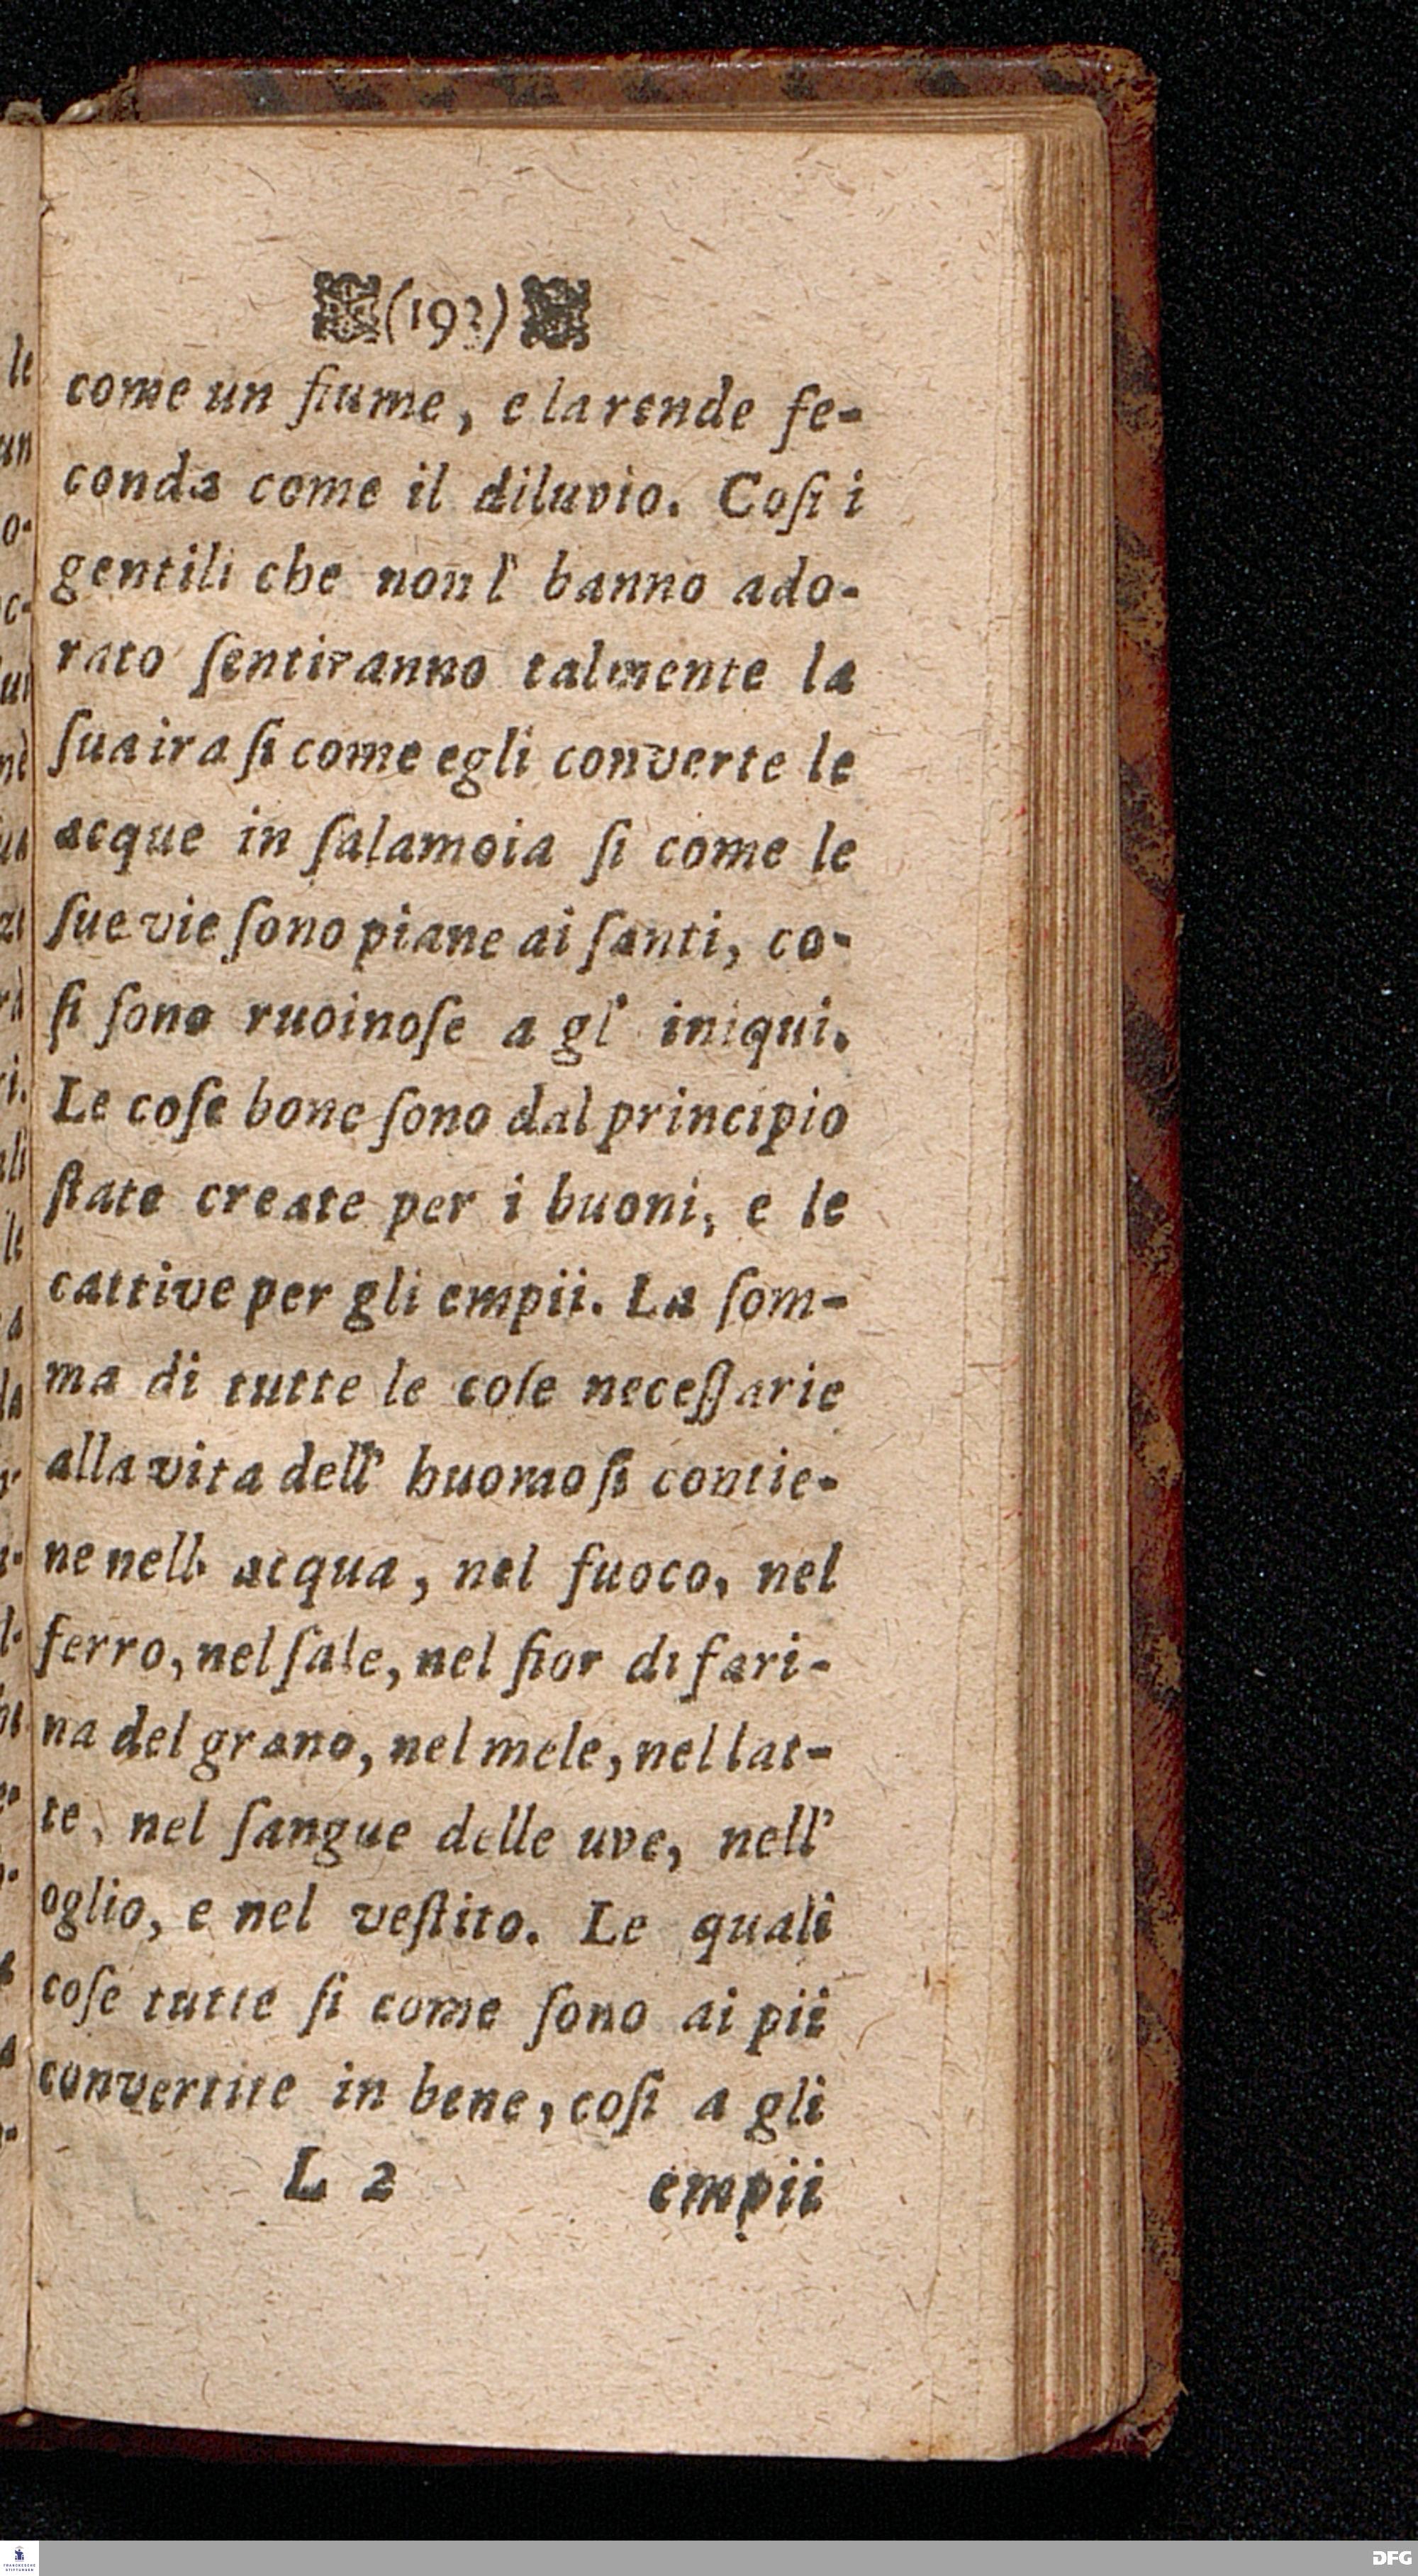 (193)
come un fiume, e la rende fe-
conda come il diluvio. Coſi i
gentili che non l' hanno ado-
rato ſentiranno talmente la
ſua ira ſi come egli converte le
acque in ſalamoia ſi come le
ſue vie ſono piane ai ſanti, co-
ſi ſono ruoinoſe a gl' iniqui.
Le coſe bone ſono dal principio
ſtate create per i buoni, e le
cattive per gli empii. La ſom-
ma di tutte le coſe neceſſarie
alla vita dell' huomo ſi contie-
ne nell' acqua, nel fuoco, nel
ferro, nel ſale, nel fior di fari-
na del grano, nel mele, nel lat-
te, nel ſangue delle uve, nell'
oglio, e nel veſtito. Le quali
coſe tutte ſi come ſono ai pii
convertite in bene, coſi a gli
L 2 empii
DFG